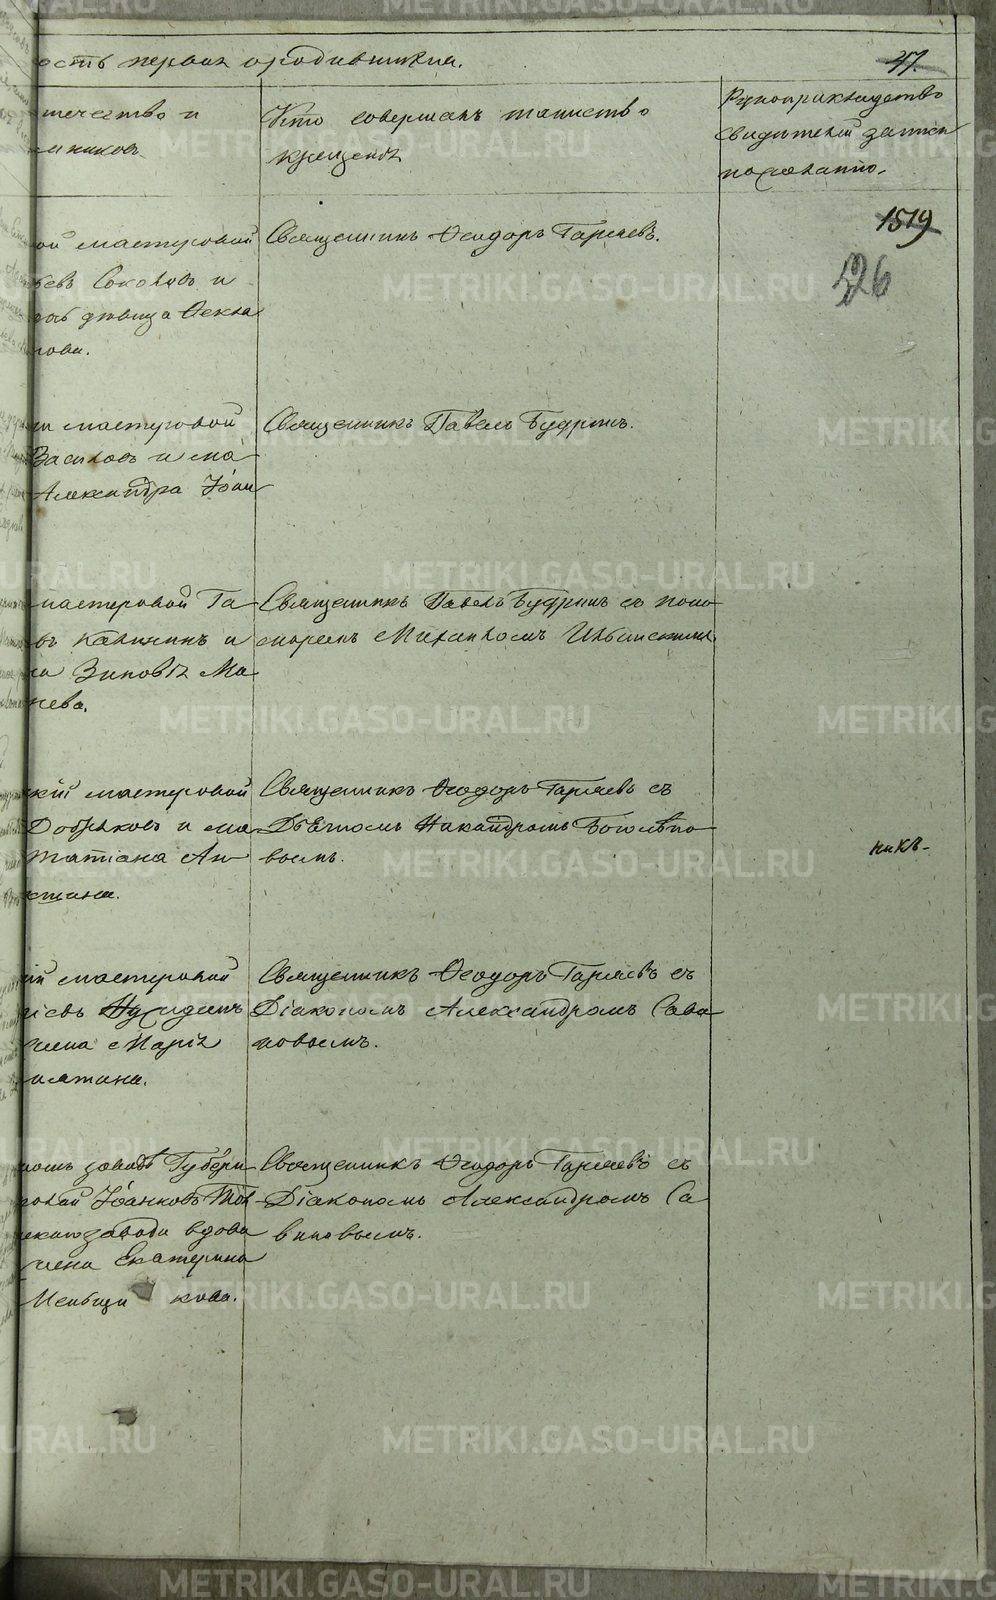 ость первая о родившихся.
47.
отечество и
емниковъ.
Кто совершалъ таинство
крещенія
Рукоприкладство
свидѣтелей записи
по желанію.
1519
526
ой мастеровой
ьевъ Соколовъ и
дочь дѣвица Ѳекла
нова.
Священникъ Ѳеодоръ Гаряевъ.
мастеровой
Василовъ и
Александра Іоан
Священникъ Павелъ Будринъ.
мастеровой Га
въ Калининъ и
на Зиновія Ма
чева.
Священникъ Павелъ Будринъ съ поно
моремъ Михаиломъ Ильинскимъ
кій мастеровой
Добряковъ и
Татіана Ан
Священникъ Ѳеодоръ Гаряевъ съ
Дьячкомъ Никандромъ Боголѣпо
вымъ.
никъ.
ій мастеровой
жена Марія
Священникъ Ѳеодоръ Гаряевъ съ
Діакономъ Александромъ Сави
новымъ.
комъ заводѣ Губерн
екаго завода вдова
жена Екатерина
Меньщи кова.
Священникъ Ѳеодоръ Гаряевъ съ
Діакономъ Александромъ Са
виновымъ.
METRIKI.GASO-URAL.RU